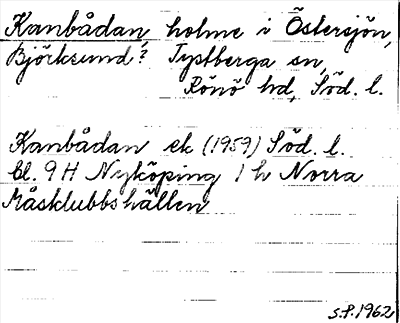 Kanbådan, holme i Östersjön,
Björksund? Tystberga sn,
Rönö hd, Söd. l.
Kanbådan ek (1959) Söd. l.
bl. 9 H Nyköping 1 h Norra
Måsklubbshällen
S.P. 1962